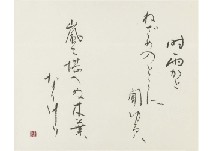 時雨かと
ねざめのとこに聞ゆるは
嵐に堪へぬ木葉
なりけり